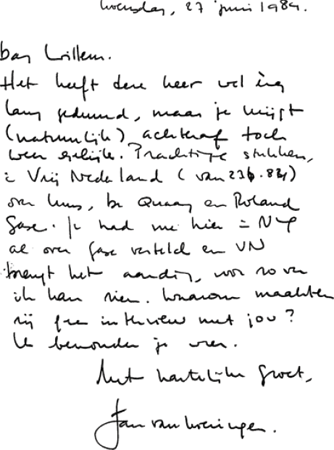 Woensdag, 27 juni 1984.
Dag Willem.
Het heeft deze keer wel erg
lang geduurd, maar je krijgt
(natuurlijk) achteraf toch
weer gelijk. Prachtige stukken,
in Vrij Nederland (van 23 6. 84)
over Luns, De Quay en Roland
Gase. Je had me hier in
al over Gase verteld en VN
brengt het aardig, voor zover
ik kan zien. Waarom maakten
zij geen interview met jou?
Ik bewonder je zeer.
Met hartelijke groet,
Jan van